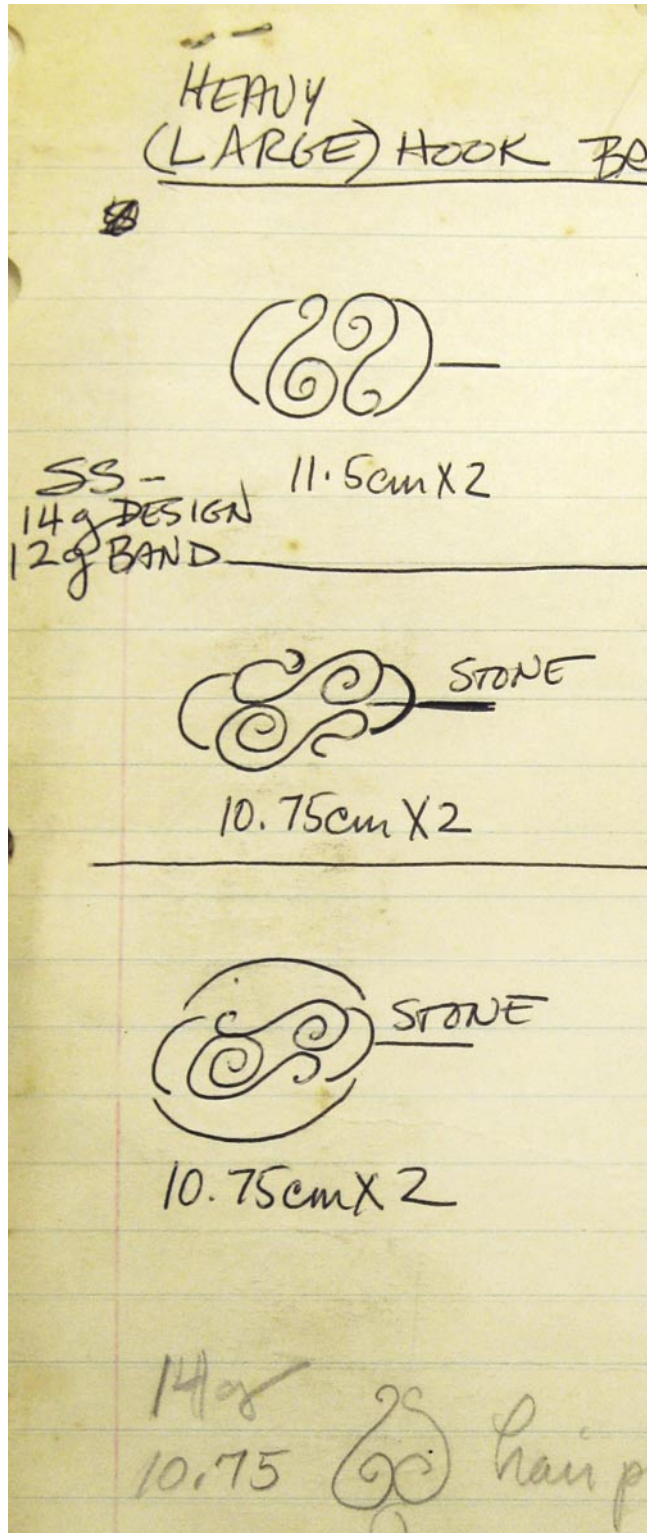 HEAVY
(LARGE) HOOK BR
11.5cm X 2
SS -
14g DESIGN
12g BAND
STONE
10.75cm X 2
STONE
10.75cm X 2
14g
10.75
hair p